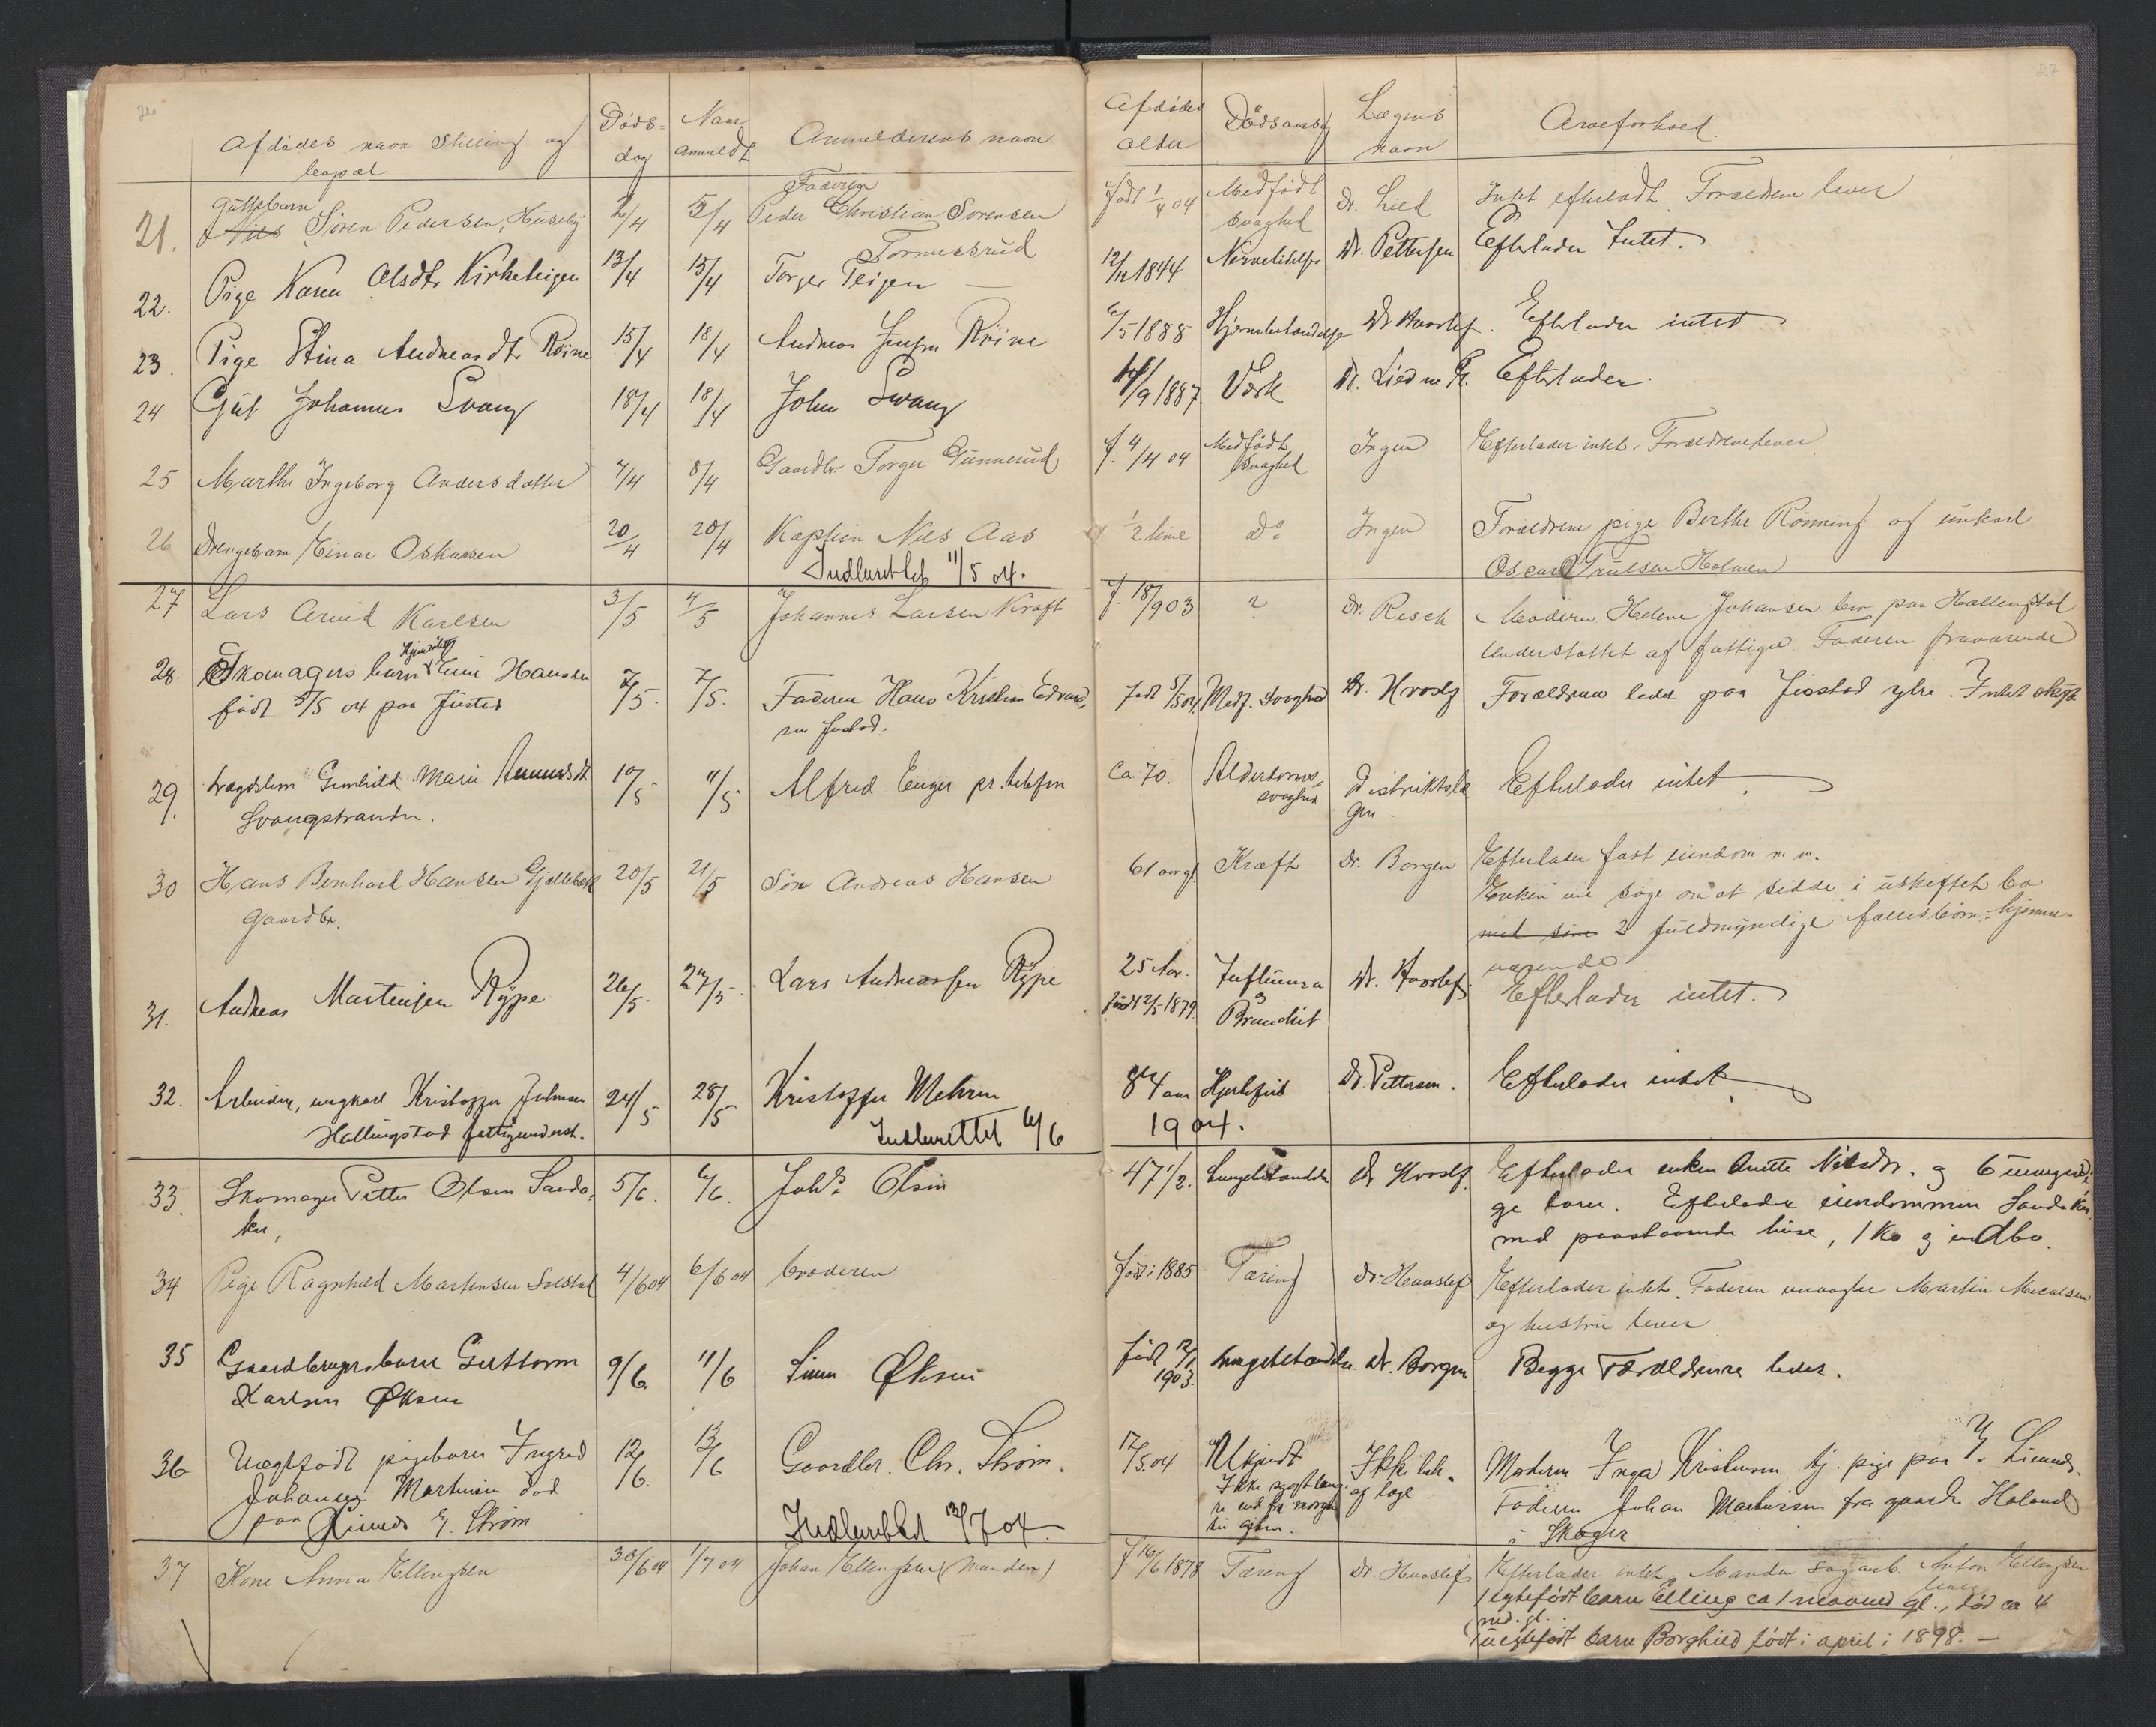 Afdödes navn Stilling og
bopæl
Döds-
dag
Naar
anmeldt
Anmelderens navn
Afdödes
alder
Dödsaarsag
Lægens
navn
Arveforhold
27
21. Guttebarn
Nils Sören Pedersen, Huseby 2/4 5/4 Faderen
Peder Christian Sorensen
Tormesrud
födt 1/4 04 Medfödt
svaghed Dr. Lied Intet efterladt. Forældrene lever
22. Pige Karen Olsdtr Kirketeigen 13/4 15/4 Torger Teigen 12/12 1844 Nervelidelse Dr. Pettersen Efterlader Intet.
23. Pige Stina Andreasdtr Röine 15/4 18/4 Andreas Jensen Röine 6/5 1888 Hjernebetændelse Dr Haaslef. Efterlader intet
24 Gut Johannes Svang 18/4 18/4 John Svang /9 1887 Værk Dr. Lied Efterlader.
25 Marthe Ingeborg Andersdatter 7/4 8/4 Gaardbr Torger Gunnerud f. 4/4 04 Medfödt
svaghed Ingen Efterlader intet. Forældrene lever
26 Drengebarn Einar Oskarsen 20/4 20/4 Kaptein Nils Aas 1/2 time Do Ingen Forældrene pige Berthe Rönning og unkarl
Oscar Truelsen Holmen
Indberettet 11/5 04.
27 Lars Arvid Karlsen 3/5 4/5 Johannes Larsen Kraft f. 18/9 03 ? Dr. Resch Moderen Helene Johansen bor paa Hallingstad
Understöttet af fattigv. Faderen fraværende
28. Skomagers barn Hjemdöbt Hansen
födt 5/5 04 paa Justad 7/5. 7/5. Faderen Hans Kristian Edvard-
sen Justad. Födt 5/5 04. Medf. svaghed Dr. Forældrene leder paa Jusstad ytre. Intet
29. Lægdslem Gunhild Marie
Svangstranden. 10/5 11/5 Alfred Enger pr. telefon Ca. 70. Alderdoms-
svaghed Distriktslæ
gen. Efterlader intet.
30 Hans Bernhard Hansen Gjellebæk
Gaardbr. 20/5 21/5 Sön Andreas Hansen 61 aar gl Kræft Dr. Borgen Efterlader fast eiendom m m.
Enken vil söge om at sidde i uskiftet bo
med sine 2 fuldmyndige fællesbörn - hjemme-
værende
31. Andreas Martinsen Rype 26/5. 27/5. Lars Andreassen Rype 25 Aar.
födt 2/5 1879. Influensa
& Dr. Haaslef Efterlader intet.
32. Arbeider, ungkarl Kristoffer Johnsen
Hallingstad fattigunderst. 24/5 28/5 Kristoffer Mehren 84 aar Hjertefeil Dr. Pettersen. Efterlader intet
Indberettet 6/6 1904.
33. Skomager Petter Olsen Sanda-
ker, 5/6. 6/6. Joh's Olsen 47 1/2. Lungebetændelse Dr Efterlader enken Anette Nilsdtr. og 6 umyndi-
ge barn. Efterlader eiendommen Sandaker
med paastaaende huse, 1 ko og indbo.
34 Pige Ragnhild Martinsen Solstad 4/6 04 6/6 04 broderen Födt i 1885 Tæring Dr. Haaslef Efterlader intet. Faderen Martin
og hustru lever
35 Gaardbrugersbarn Guttorm
Karlsen Øksne 9/6. 11/6 Øksne födt 12/1
1903. Lungebetændelse. Dr. Borgen Begge Forældrene leder.
36 Uægtefödt pigebarn Ingrid
Johanne Martinsen död
paa Liemds Y. Ström 12/6. 13/6 Gaardbr. Chr. Ström. 17/5. 04 Ukjendt
Ikke sygt læn-
re end fra morgen
til aften. Ikke beh.
af læge Moderen Inga Kristensen tj. pige paa Y. Liemds.
Faderen Johan Martinsen fra gaarden Holand
i Skoger
Indberettet 13/7 04
37 Kone Anna Ellingsen 30/6 04 1/7 04 Johan Ellingsen (Manden) f 16/6 1878 Tæring Dr. Haaslef Efterlader intet. Manden sagarb. Anton Ellingsen lever
1 egtefödt barn Elling ca 1 maaned gl., död ca 4
md. gl.
1 uegtefödt barn Borghild födt i april i 1898. —